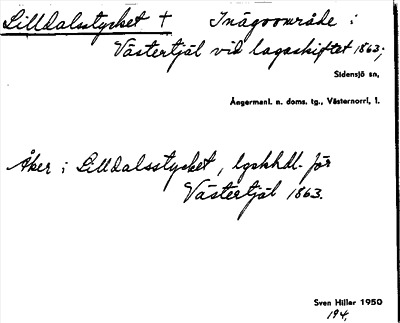 Lilldalsstycket + Inägoområde i
Västertjäl vid lagaskiftet 1863;
Sidensjö sn,
Ångermanl. n. doms. tg., Västernorrl, l.
Åker i Lilldalsstycket, lgskhdl. för
Västertjäl 1863.
Sven Hiller 1950
194.